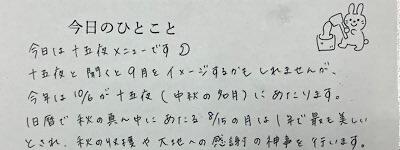 今日のひとこと
今日は十五夜メニューです
十五夜と聞くと9月をイメージするかもしれませんが、
今年は10/6が十五夜(中秋の名月)にあたります。
旧暦で秋の真ん中にあたる8/15の月は1年で最も美しい
とされ、秋の収穫や大地への感謝の神事を行います。